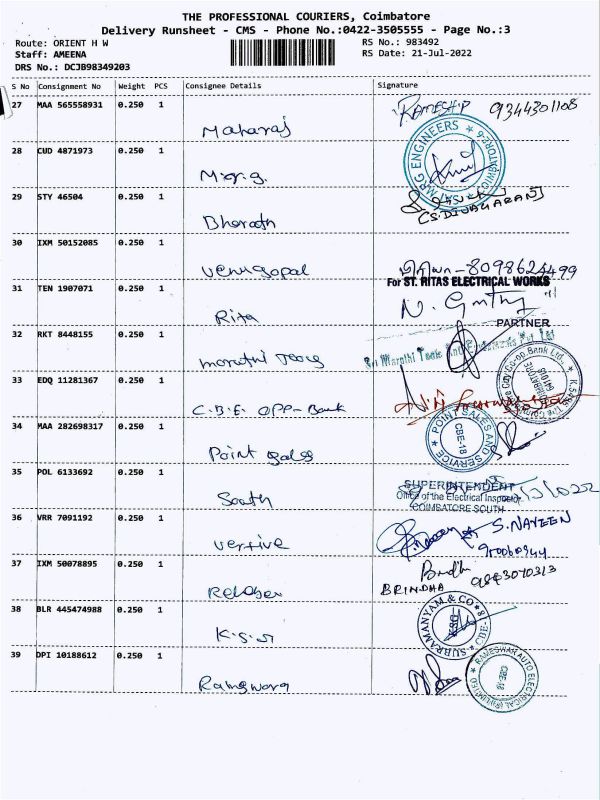 THE PROFESSIONAL COURIERS, Coimbatore
Delivery Runsheet - CMS - Phone No.:0422-3505555 - Page No.:3
Route: ORIENT H W RS No.: 983492
Staff: AMEENA RS Date: 21-Jul-2022
DRS No.: DCJB98349203
S No Consignment No Weight PCS Consignee Details Signature
27 MAA 565558931 0.250 1 Maharaj 9344301108
28 CUD 4871973 0.250 1 M.r.g. SAI MRG ENGINEERS
29 STY 46504 0.250 1 Bharath
30 IXM 50152085 0.250 1 Venugopal
For ST. RITAS ELECTRICAL WORKS
31 TEN 1907071 0.250 1 Rita
PARTNER
32 RKT 8448155 0.250 1 Sri Marathi Tools
33 EDQ 11281367 0.250 1 C.B.E OPP-Bank
34 MAA 282698317 0.250 1 Point Sales POINT SALES AND SERVICE CBE-18
35 POL 6133692 0.250 1 South
SUPERINTENDENT
Office of the Electrical Inspector
COIMBATORE SOUTH
36 VRR 7091192 0.250 1 Vertive S. NAVEEN
37 IXM 50078895 0.250 1 BRINDHA 9843070313
38 BLR 445474988 0.250 1 SUBRAMANYAM & CO
39 DPI 10188612 0.250 1 RAMESWAR AUTO ELECTRICAL CBE-18